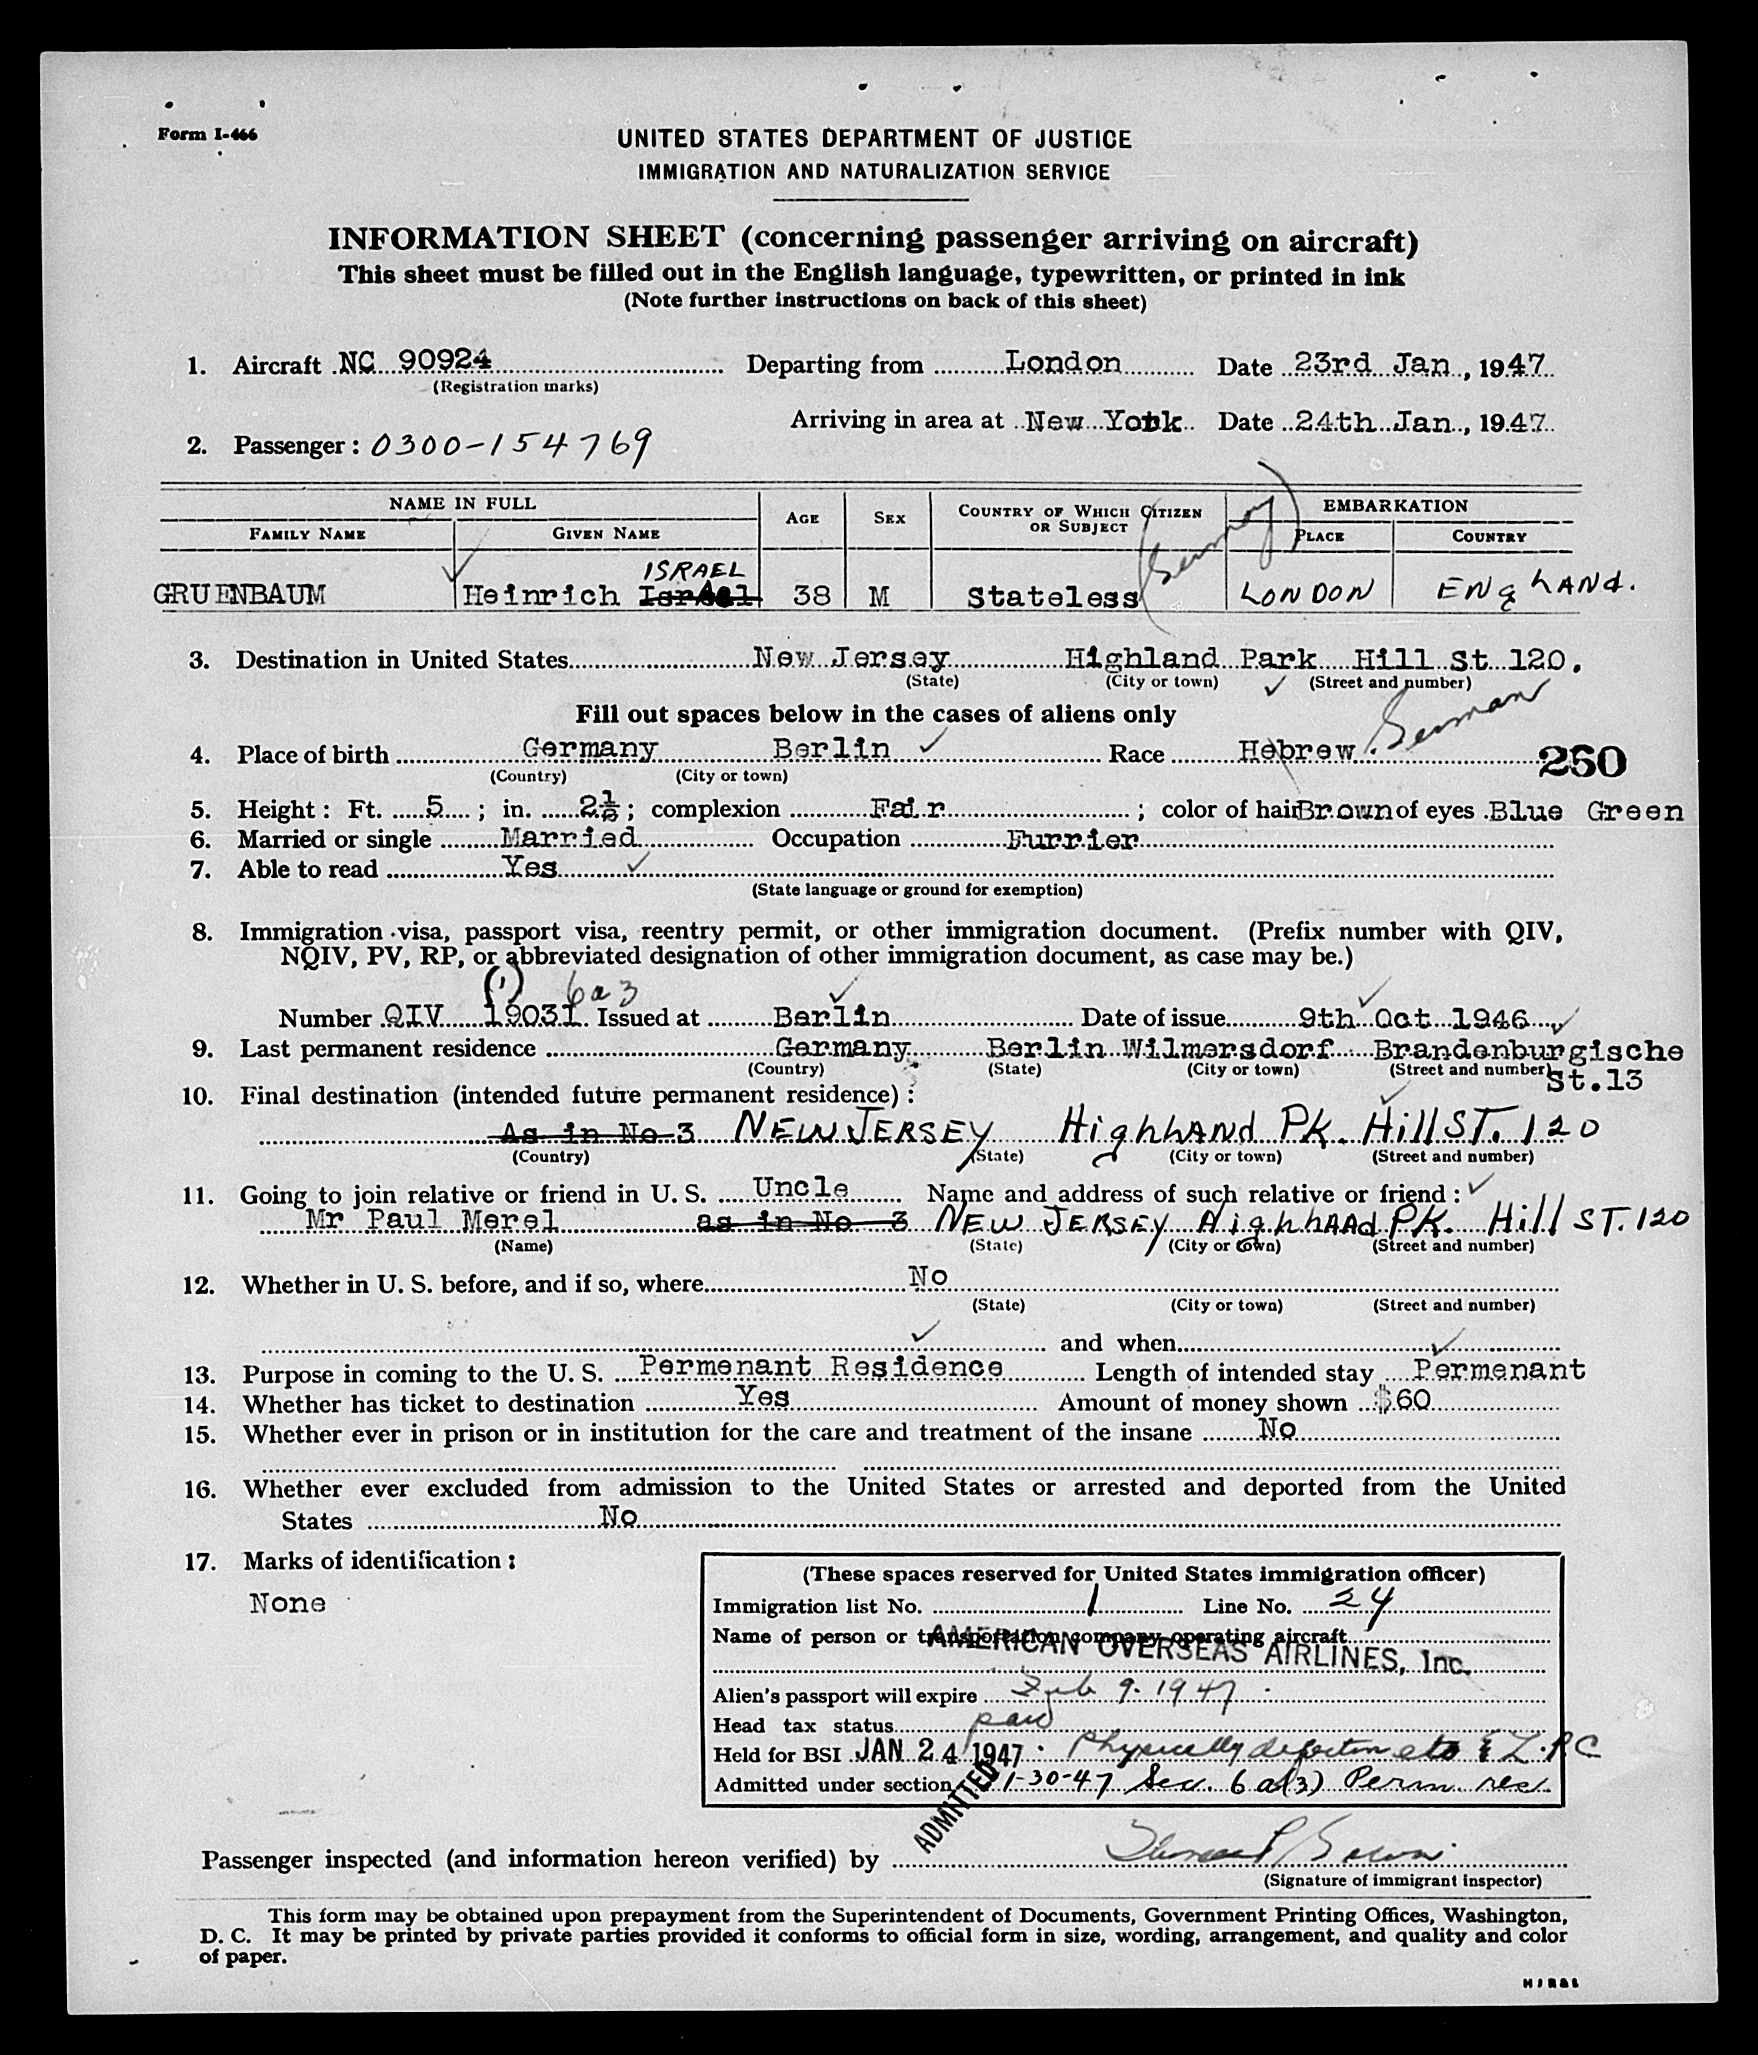 Form I-466
UNITED STATES DEPARTMENT OF JUSTICE
IMMIGRATION AND NATURALIZATION SERVICE
INFORMATION SHEET (concerning passenger arriving on aircraft)
This sheet must be filled out in the English language, typewritten, or printed in ink
(Note further instructions on back of this sheet)
1. Aircraft NC 90924 Departing from London Date 23rd Jan, 1947
(Registration marks)
Arriving in area at New York Date 24th Jan, 1947
2. Passenger: 0300-154769
NAME IN FULL AGE SEX COUNTRY OF WHICH CITIZEN OR SUBJECT EMBARKATION
FAMILY NAME GIVEN NAME PLACE COUNTRY
(Germany)
ISRAEL
GRUENBAUM Heinrich Israel 38 M Stateless LONDON ENgLANd.
3. Destination in United States New Jersey Highland Park Hill St 120.
(State) (City or town) (Street and number)
Fill out spaces below in the cases of aliens only
German
4. Place of birth Germany Berlin Race Hebrew 250
(Country) (City or town)
5. Height: Ft. 5; in. 2½; complexion Fair; color of hair Brown of eyes Blue Green
6. Married or single Married Occupation Furrier
7. Able to read Yes
(State language or ground for exemption)
8. Immigration visa, passport visa, reentry permit, or other immigration document. (Prefix number with QIV,
NQIV, PV, RP, or abbreviated designation of other immigration document, as case may be.)
(1) 6a3
Number QIV 19031 Issued at Berlin Date of issue 9th Oct 1946
9. Last permanent residence Germany Berlin Wilmersdorf Brandenburgische
(Country) (State) (City or town) (Street and number) St.13
10. Final destination (intended future permanent residence):
As in No 3 NEW JERSEY HighLANd PK. Hill ST. 120
(Country) (State) (City or town) (Street and number)
11. Going to join relative or friend in U. S. Uncle Name and address of such relative or friend:
Mr Paul Merel as in No 3 NEW JERSEY HighLANd PK. Hill ST. 120
(Name) (State) (City or town) (Street and number)
12. Whether in U. S. before, and if so, where No
(State) (City or town) (Street and number)
and when
13. Purpose in coming to the U. S. Permenant Residence Length of intended stay Permenant
14. Whether has ticket to destination Yes Amount of money shown $60
15. Whether ever in prison or in institution for the care and treatment of the insane No
16. Whether ever excluded from admission to the United States or arrested and deported from the United
States No
17. Marks of identification:
None
(These spaces reserved for United States immigration officer)
Immigration list No. 1 Line No. 24
Name of person or transportation company operating aircraft
AMERICAN OVERSEAS AIRLINES, Inc.
Alien's passport will expire Feb 9. 1947
Head tax status paid
Held for BSI JAN 24 1947 Physically defective & L.P.C
Admitted under section 1-30-47 Sec. 6 a(3) Perm res.
ADMITTED
Passenger inspected (and information hereon verified) by
(Signature of immigrant inspector)
This form may be obtained upon prepayment from the Superintendent of Documents, Government Printing Offices, Washington,
D. C. It may be printed by private parties provided it conforms to official form in size, wording, arrangement, and quality and color
of paper.